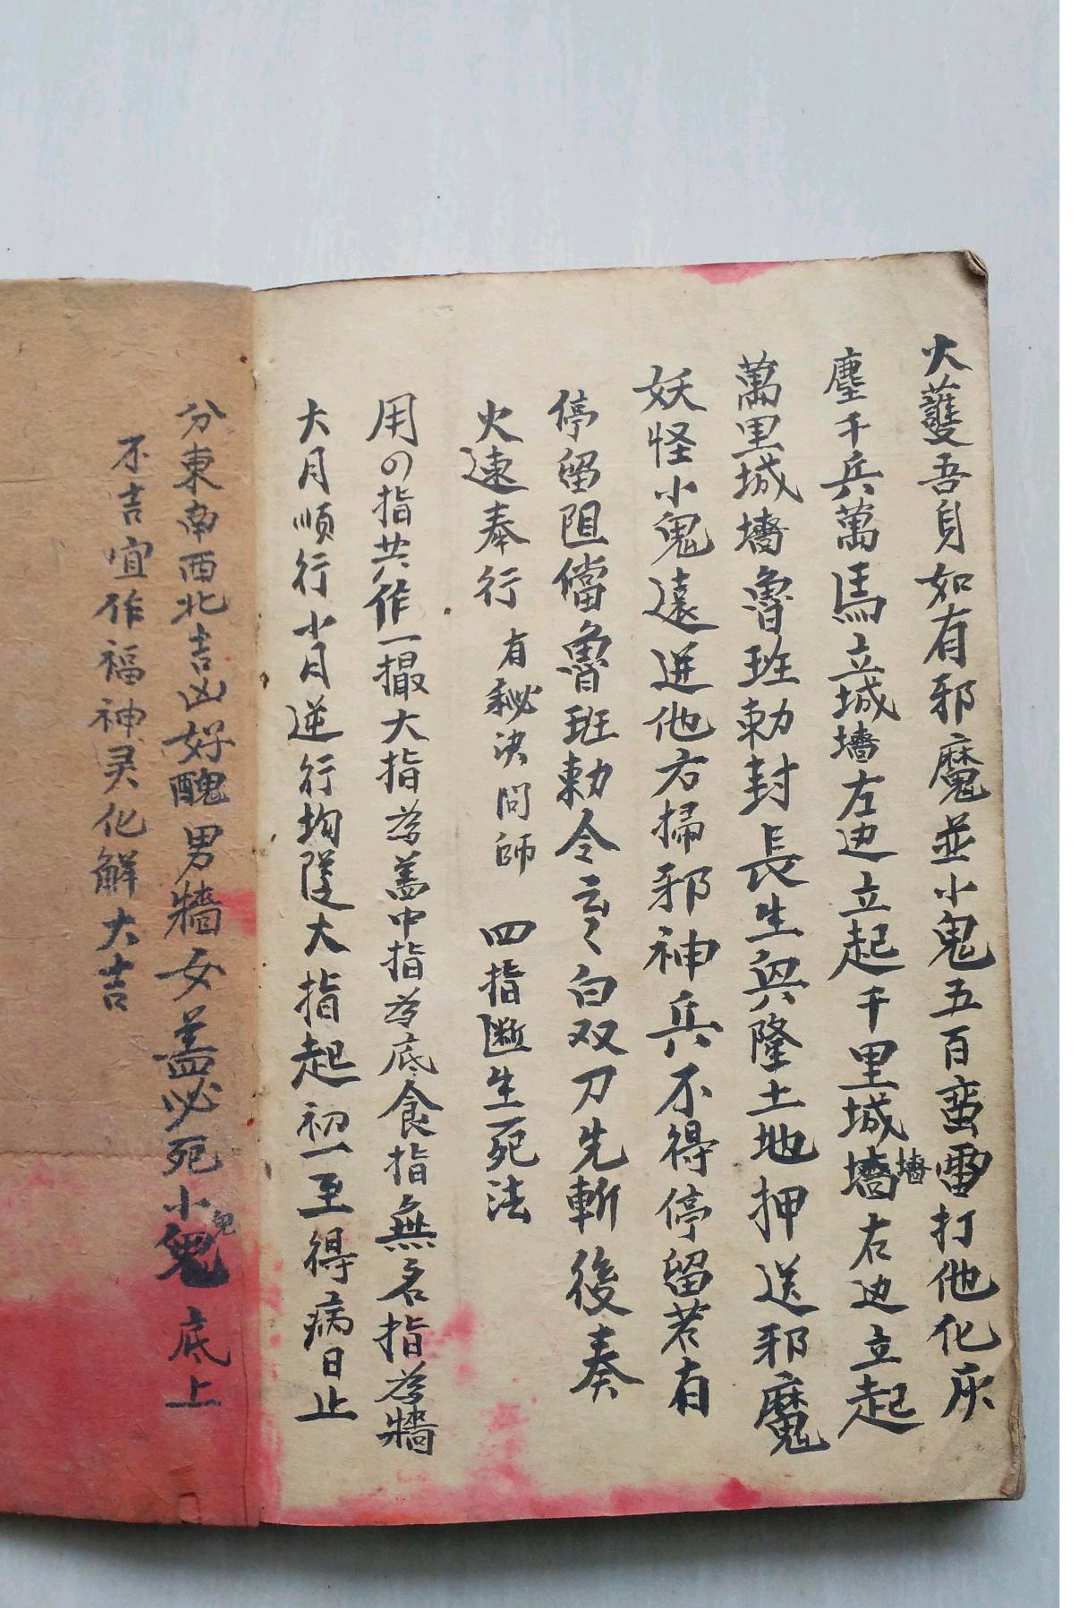 大護吾身如有邪魔並小鬼五百蛮雷打他化灰
塵千兵萬馬立城墻左边立起千里城墻墻右边立起
萬里城墻魯班勅封長生興隆土地押送邪魔
妖怪小鬼遠迸他方掃邪神兵不得停留若有
停留阻儅魯班勅令 白双刀先斬後奏
火速奉行 有秘决问師 四指断生死法
用の指共作一撮大指為盖中指為底食指無名指為牆
大月順行小月逆行均 大指起初一至得病日止
分東南西北吉凶好醜男牆女盖必死小鬼底上
不吉宜作福神灵化解大吉